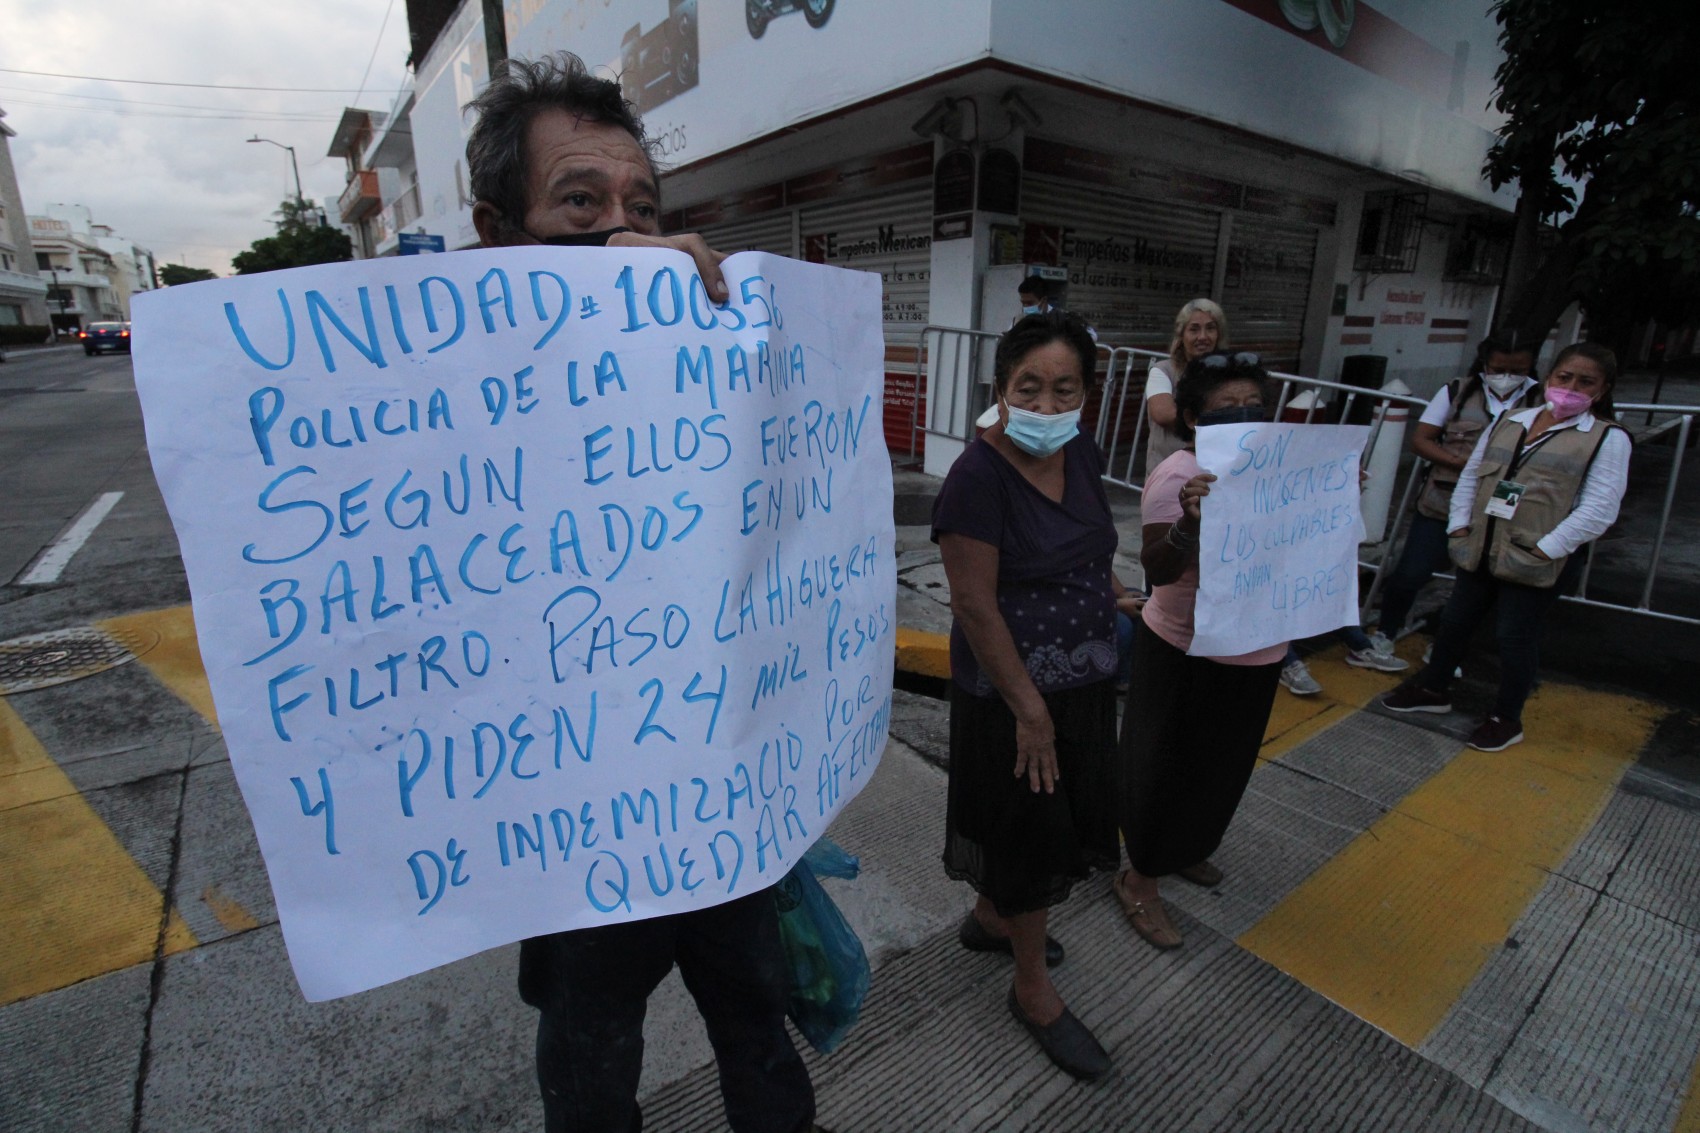 UNIDAD # 100356
POLICIA DE LA MARINA
SEGUN ELLOS FUERON
BALACEADOS EN UN
FILTRO. PASO LA HIGUERA
Y PIDEN 24 MIL PESOS
DE INDEMIZACIO POR
QUEDAR AFECTADO
SON
INOSENTES
LOS CULPABLES
ANDAN LIBRES
Empeños Mexican
Empeños Mexicanos
a la man
alución a la mano
HOTEL